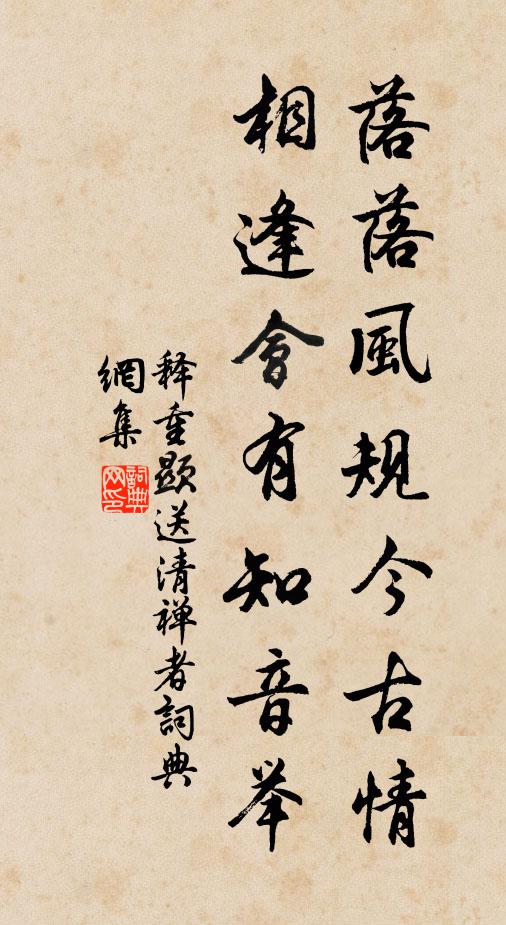 落落風規今古情
相逢會有知音举
释重顯送清禅者詞典
網集
詞典
网印